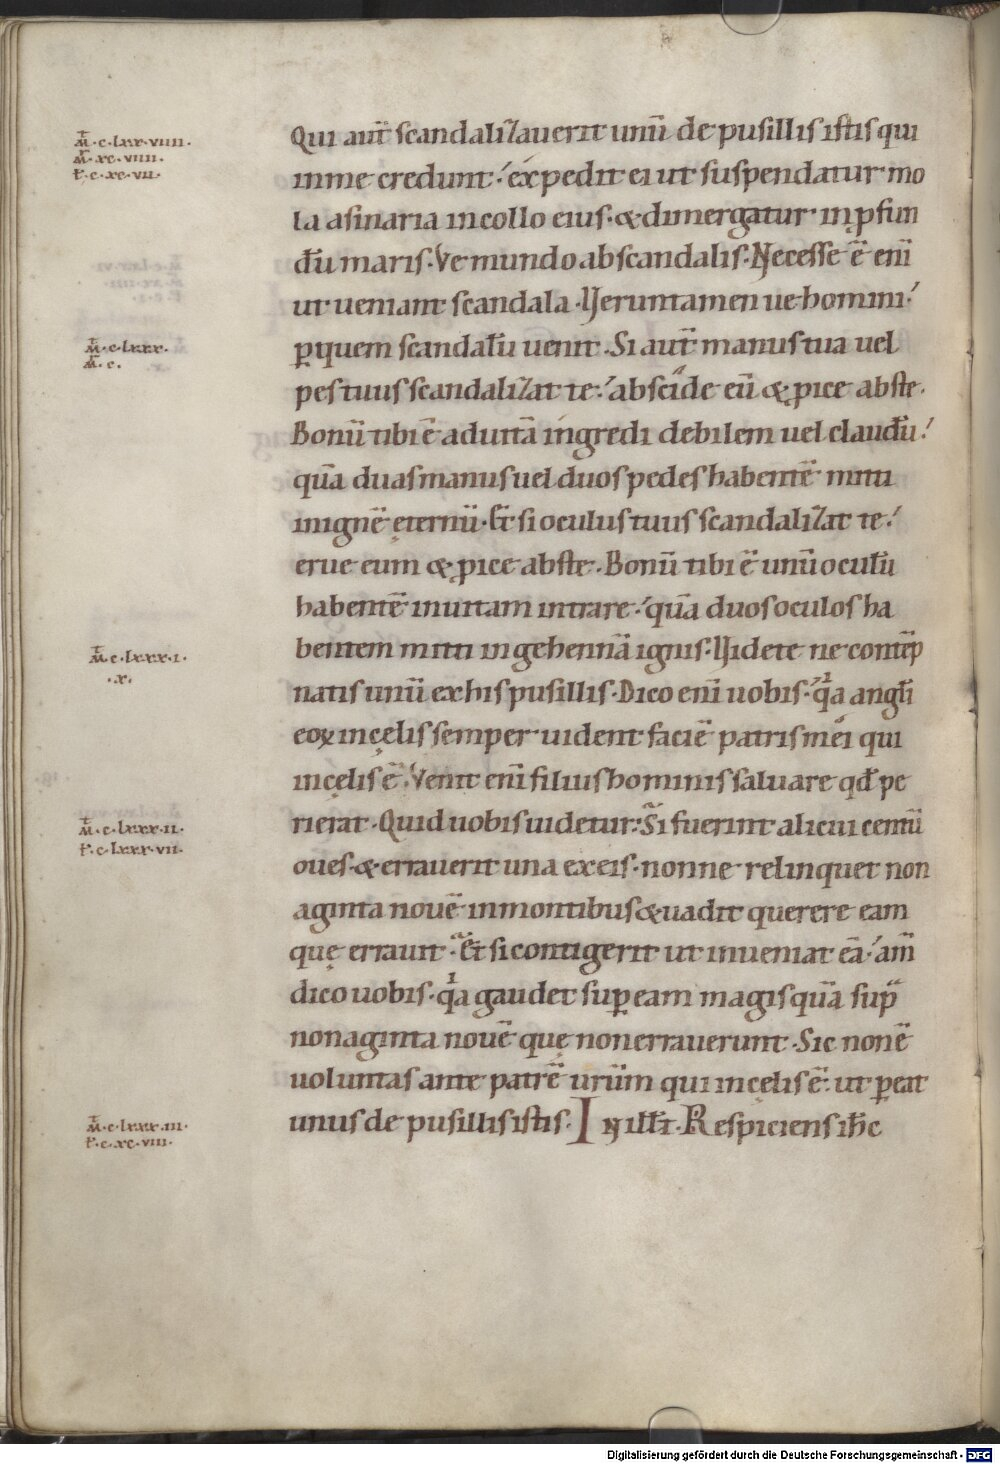 m̄·c·lxx·viiii·
m̄·xc·viiii·
l̄·c·xc·vii·
Qui aut̄ scandalizauerit unū de pusillis istis qui
in me credunt· expedit ei ut suspendatur mo
la asinaria in collo eius· & dimergatur in ꝓfun
dū maris· Ve mundo ab scandalis· Necesse ē enī
ut ueniant scandala· Veruntamen ue homini·
ꝑ quem scandalū uenit· Si aut̄ manus tua uel
m̄·c·lxxx·
m̄·c·
pes tuus scandalizat te· abscide eū & ꝓice abs te·
Bonū tibi ē ad uitā ingredi debilem uel claudū·
quā duas manus uel duos pedes habentē mitti
in ignē ęternū· Et si oculus tuus scandalizat te·
erue eum & ꝓice abs te· Bonū tibi ē unū oculū
habentē in uitam intrare· quā duos oculos ha
bentem mitti in gehennā ignis· Videte ne contēp
m̄·c·lxxx·i·
·x·
natis unū ex his pusillis· Dico enī uobis· q̄a angl̄i
eoꝝ in cęlis semper uident faciē patris mei qui
in cęlis ē· Venit enī filius hominis saluare qđ pe
rierat· Quid uobis uidetur· Si fuerint alicui centū
m̄·c·lxxx·ii·
l̄·c·lxxx·vii·
oues· & errauerit una ex eis· nonne relinquet non
aginta nouē in montibus & uadit querere eam
quę errauit· Et si contigerit ut inueniat eā· am̄
dico uobis· q̄a gaudet suꝑ eam magis quā sup̄
nonaginta nouē quę non errauerunt· Sic non ē
uoluntas ante patrē ur̄um qui in cęlis ē· ut ꝑeat
unus de pusillis istis· IN ill̄t· Respiciens ih̄c
m̄·c·lxxx·iii·
l̄·c·xc·viii·
Digitalisierung gefördert durch die Deutsche Forschungsgemeinschaft - DFG